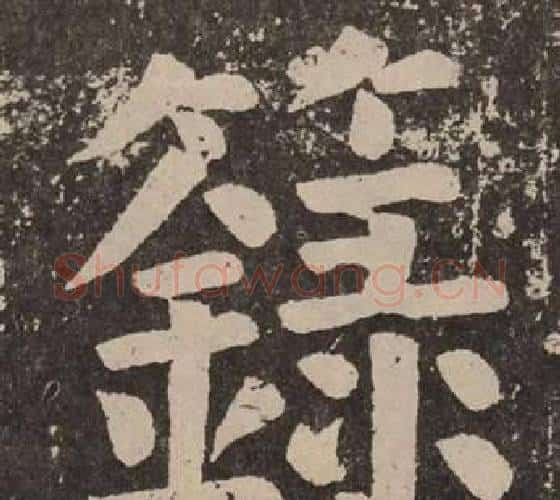 籙
Shufawang.CN